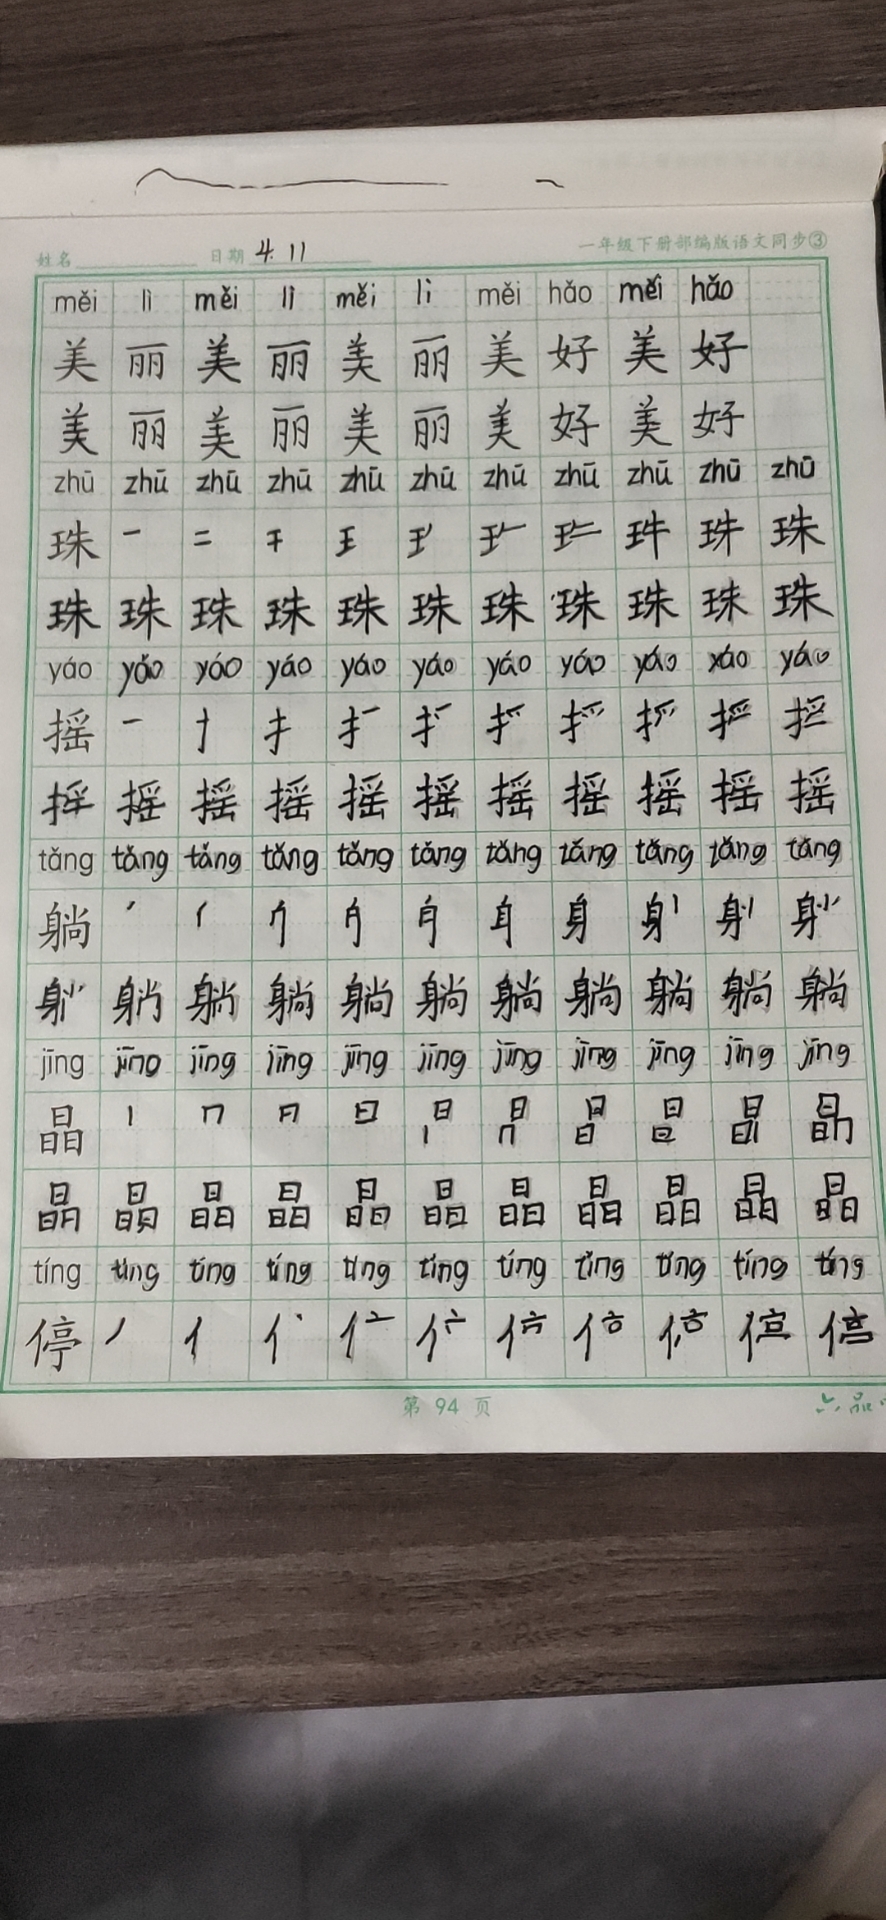 姓名 日期 4.11 一年级下册部编版语文同步③
měi lì měi lì měi lì měi hǎo měi hǎo
美 丽 美 丽 美 丽 美 好 美 好
美 丽 美 丽 美 丽 美 好 美 好
zhū zhū zhū zhū zhū zhū zhū zhū zhū zhū zhū
珠 一 二 干 王 珠
珠 珠 珠 珠 珠 珠 珠 珠 珠 珠 珠
yáo yáo yáo yáo yáo yáo yáo yáo yáo yáo yáo
摇 一 扌
摇 摇 摇 摇 摇 摇 摇 摇 摇
tǎng tǎng tǎng tǎng tǎng tǎng tǎng tǎng tǎng tǎng tǎng
躺 身
躺 躺 躺 躺 躺 躺 躺
jīng jīng jīng jīng jīng jīng jīng jīng jīng jīng jīng
晶 日
晶 晶 晶 晶 晶 晶 晶 晶 晶 晶
tíng tíng tíng tíng tíng tíng tíng tíng tíng tíng tíng
停 丿 亻
第 94 页 六品